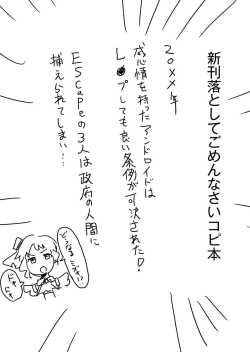 新刊落としてごめんなさいコピ本
20××年
感情を持ったアンドロイドは
L●プしても良い条例が可決された!
EScapeの3人は政府の人間に
捕えられてしまい…
どうなる